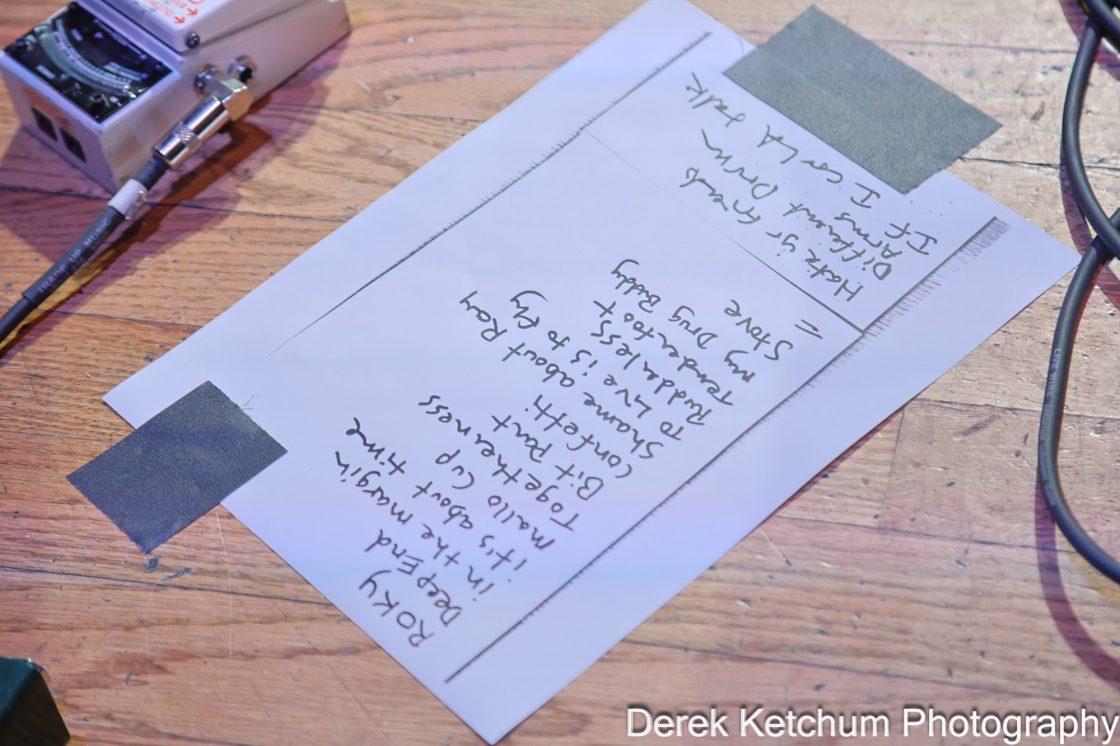 ROKY
Deep End
in the margin
it's about time
mallo Cup
Togetherness
Bit Part
Confetti
Shame about Ray
To Live is to Fly
Rudderless
Tenderfoot
my Drug Buddy
Stove
=
Hate yr friends
Different Drum
Arms
If I could talk
OUTPUT
TRADE UP MUSIC
Derek Ketchum Photography